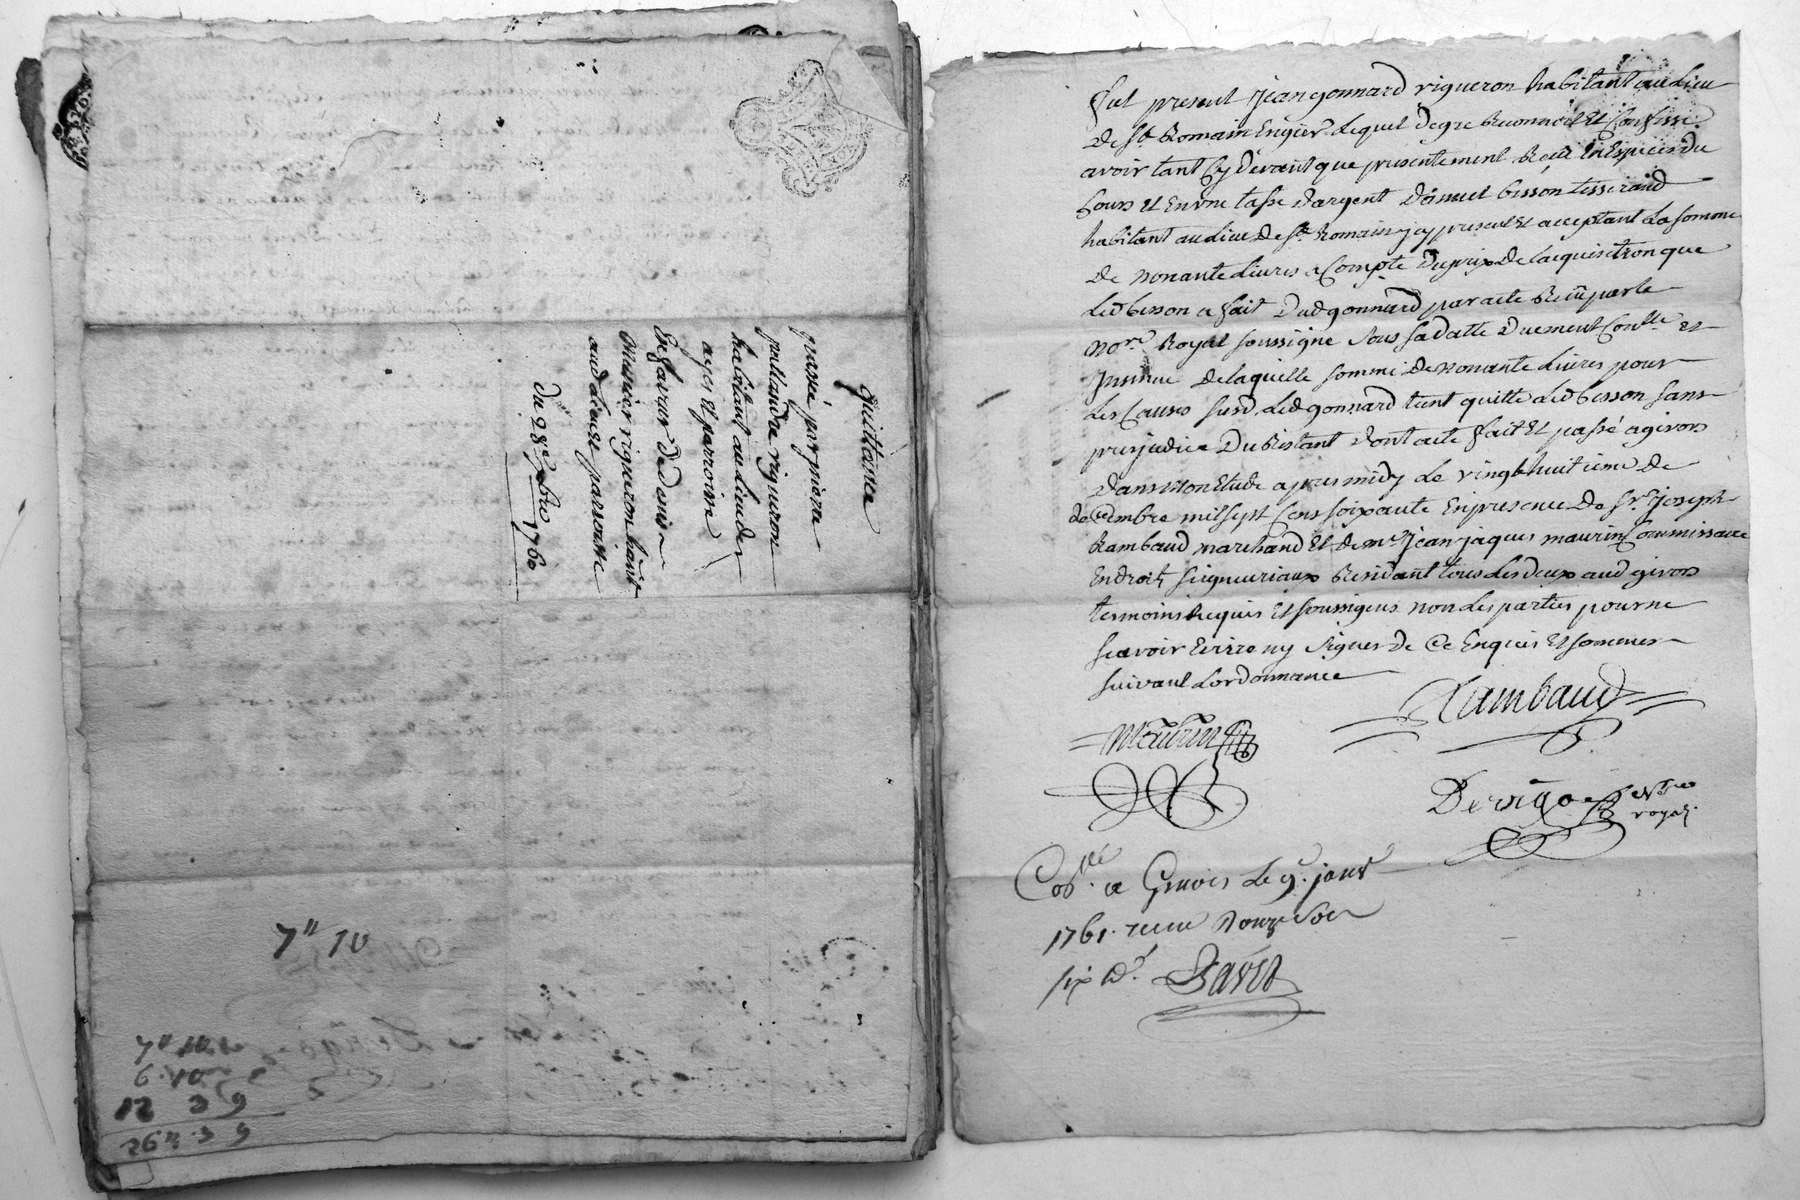 Quittance
passé par pierre
habitant au lieu de
ayes et parroisse
En faveur de denis
vigneron habit
aud lieu et parroisse
du 28e xbre 1760
7" 10
7" 10
6 10
12 3 9
26" 3 9
fut present Jean gonnard vigneron habitant au lieu
De St Romain Engier Lequel De gre Reconnoit Et Confesse
avoir tant Cy Devant que presentement Reçu En Especes Du
Cours Et En une tasse Dargent besson tesserand
habitant au lieu De St Romain jcy present Et acceptant La somme
De nonante Livres a Compte Du prix De Lacquisition que
Led besson a fait Dud gonnard par acte Reçu par le
nore Royal soussigne sous sa datte Duement Conllé Et
Jnsinue De laquelle somme De nonante Livres pour
Les Causes susd. Led gonnard tient quitte Led besson sans
prejudice Du Restant Dont acte fait Et passé a givors
Dans mon Etude apres midy Le vingt huitieme De
decembre mil sept Cens soixante En presence De Sr Joseph
Rambaud marchand Et De me Jean jaques maurin Commissaire
En droits seigneuriaux Residant tous Les deux aud givors
tesmoins Requis Et soussignes non Les parties pour ne
scavoir Ecrire ny signer De Ce Enquis Et sommes
suivant Lordonnance
Rambaud
Maurin
Nre
royal
Collé a Givors Le 9. janv
1761. reçu Douze sols
six d.